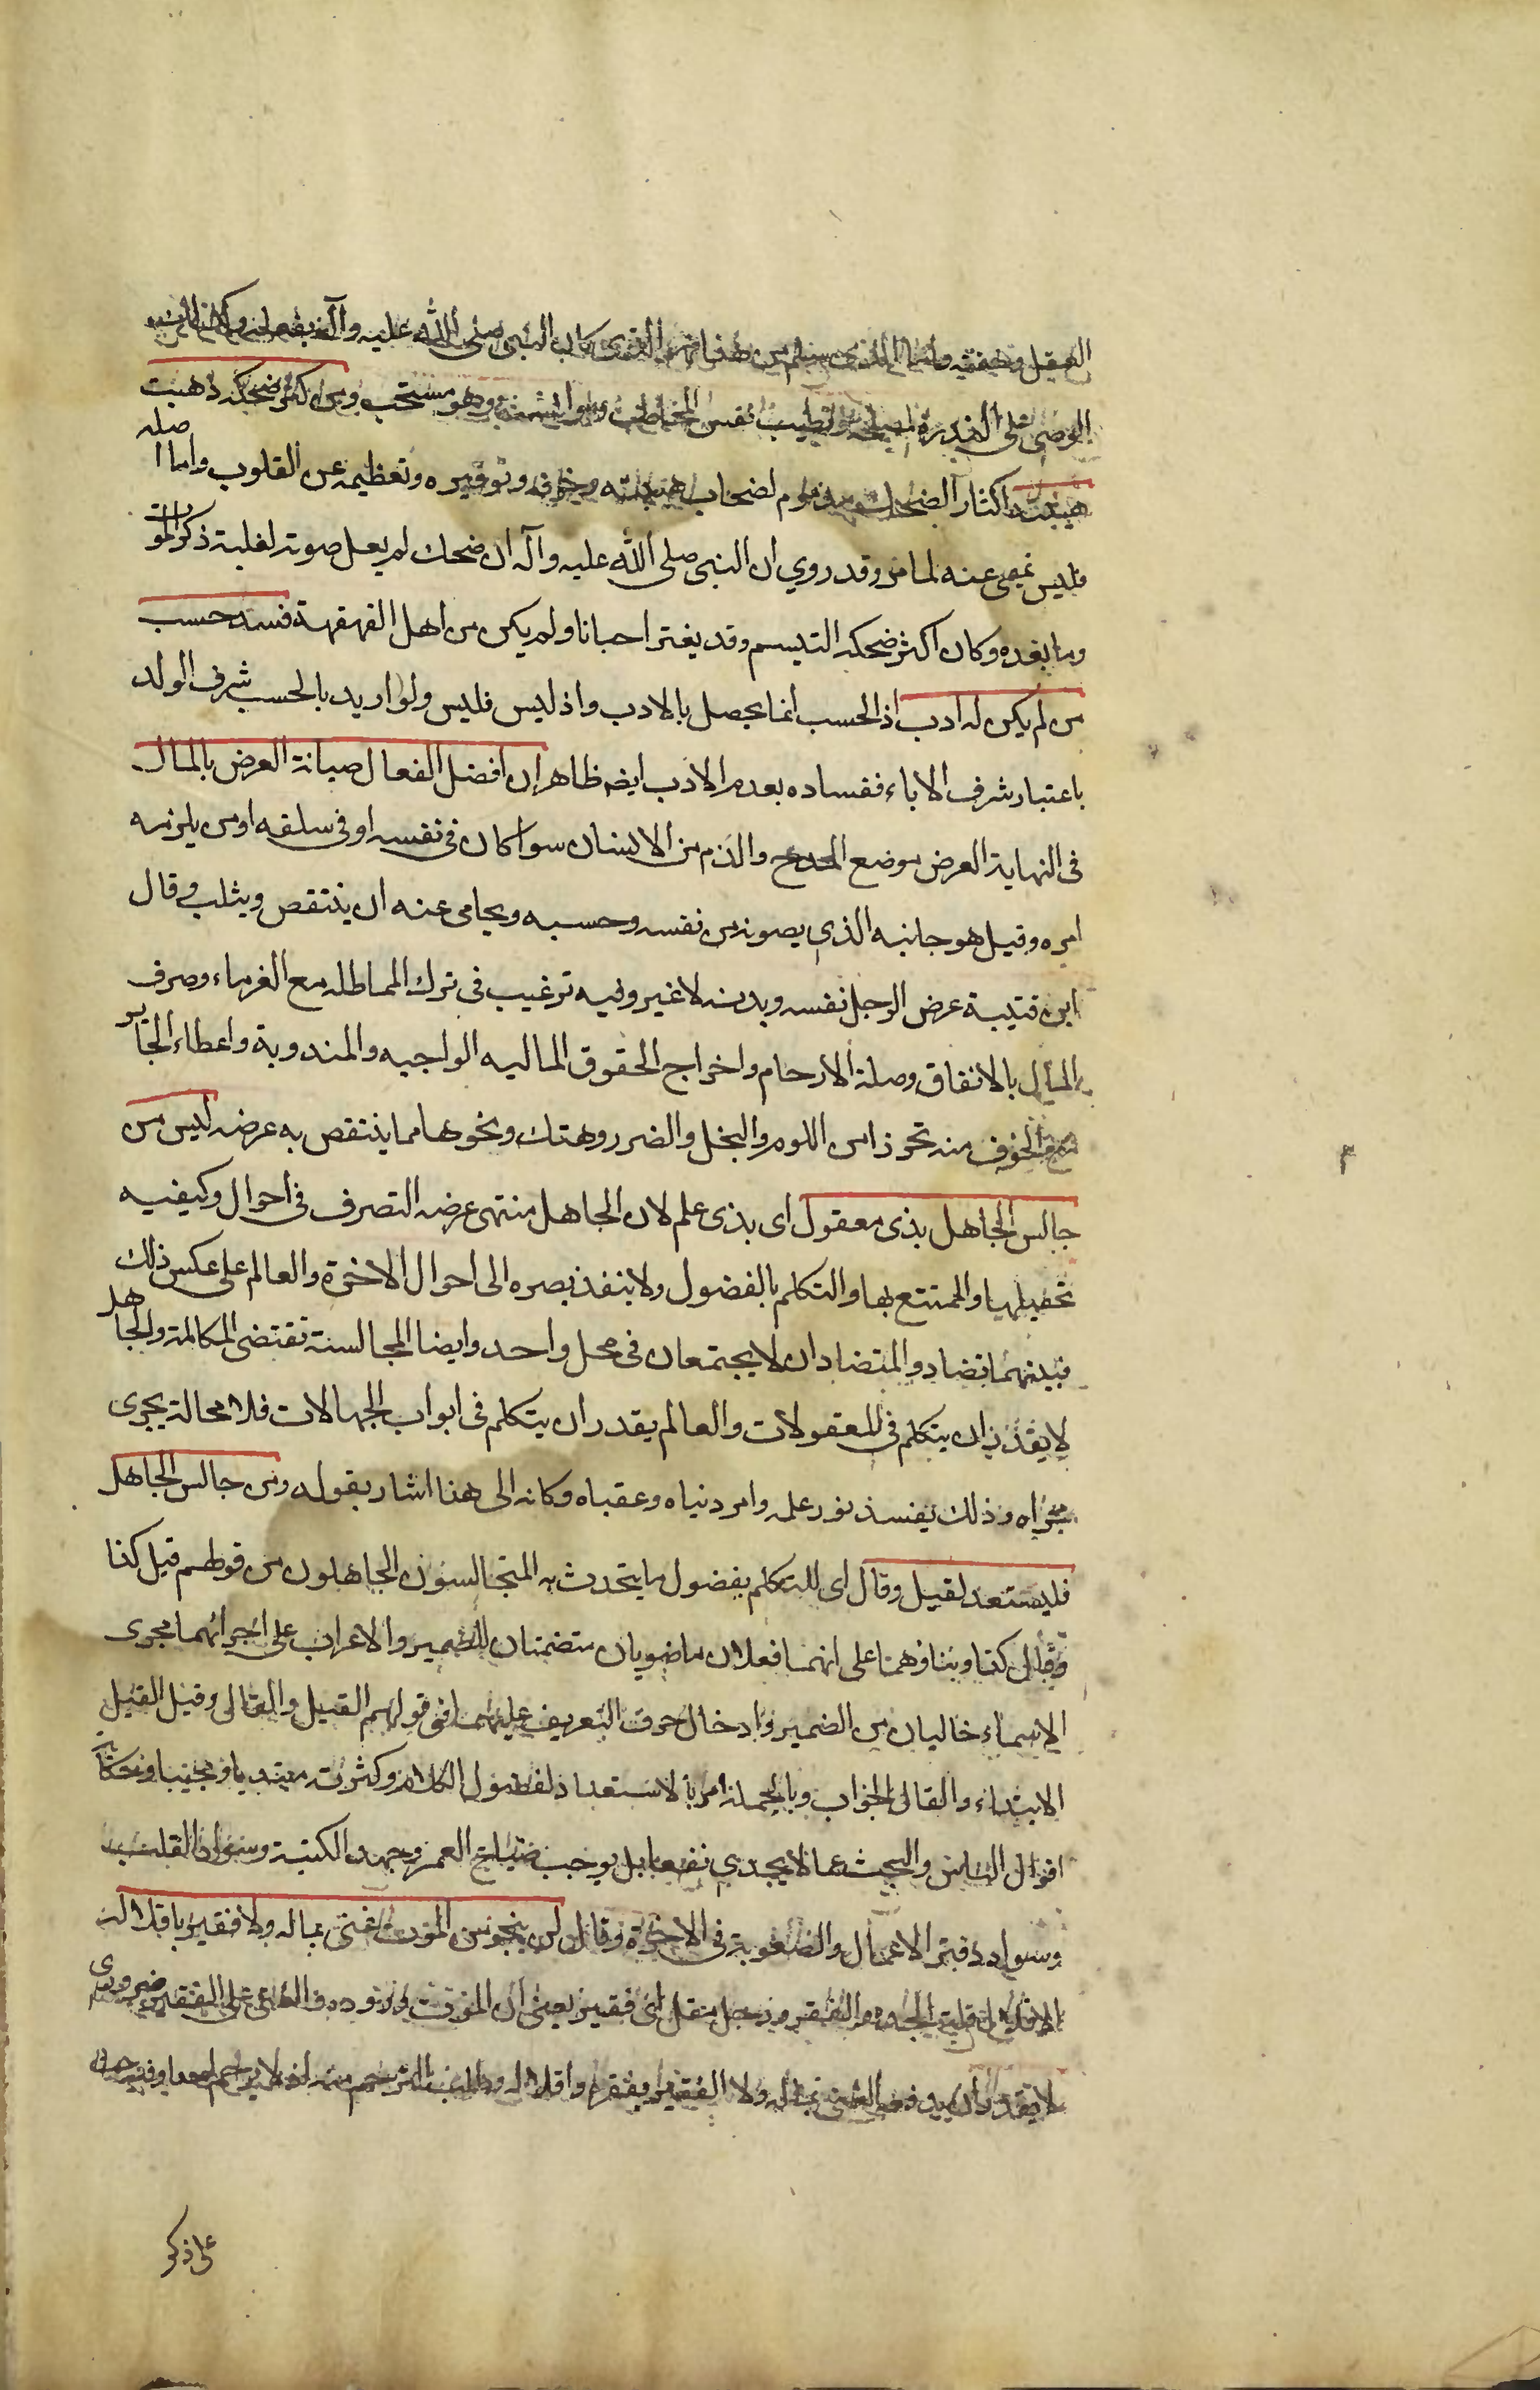 العقل وخفته واما الذي سلم من هذا فهو الذي كان النبي صلى الله عليه وآله يفعله
على الندرة لمصلحة وتطييب نفس المخاطب ومؤانسته وهو مستحب ومن كثر ضحكه ذهبت
هيبته اكثار الضحك مذموم لصحاب هيبته وخوفه وتوقيره وتعظيمه عن القلوب واما اصله
فليس نهى عنه لما مر وقد روي ان النبي صلى الله عليه وآله ان ضحك لم يعل صوته لغلبة ذكر الموت
وما بعده وكان اكثر ضحكه التبسم وقد يفتر احيانا ولم يكن من اهل القهقهة فسد حسب
من لم يكن له ادب اذ الحسب انما يحصل بالادب واذ ليس فليس ولو اريد بالحسب شرف الولد
باعتبار شرف الاباء ففساده بعدم الادب ايضا ظاهر ان افضل الفعال صيانة العرض بالمال
فى النهاية العرض موضع المدح والذم من الانسان سوا كان فى نفسه او فى سلفه او من يلزمه
امره وقيل هو جانبه الذي يصونه من نفسه وحسبه ويحامى عنه ان ينتقص ويثلب وقال
ابن قتيبة عرض الرجل نفسه وبدنه لا غير وفيه ترغيب فى ترك المماطله مع الغرماء وصرف
المال بالانفاق وصلة الارحام واخراج الحقوق الماليه الواجبه والمندوبة واعطاء الجائر
مع الخوف منه تحرزا من اللوم والبخل والضرر وهتك ونحوها مما ينتقص به عرضه ليس من
جالس الجاهل بذى معقول اى بذى علم لان الجاهل منتهى عرضه التصرف فى احوال وكيفيه
تحصيلها والتمتع بها والتكلم بالفضول ولا ينفذ بصره الى احوال الاخرة والعالم على عكس ذلك
فبينهما تضاد والمتضادان لا يجتمعان فى محل واحد وايضا المجالسة تقتضى المكالمة والجاهل
لا يقدر ان يتكلم فى المعقولات والعالم يقدر ان يتكلم فى ابواب الجهالات فلا محالة يجرى
مجراه وذلك يفسد نور علمه وامر دنياه وعقباه وكانه الى هذا اشار بقوله ومن جالس الجاهل
فليستعد لقيل وقال اى للتكلم بفضول ما يتحدث به المتجالسون الجاهلون من قولهم قيل كذا
وقال كذا وبناؤهما على انهما فعلان ماضويان متضمنان للضمير والاعراب على اجرائهما مجرى
الاسماء خاليان من الضمير وادخال حرف التعريف عليهما فى قولهم القيل والقال وقيل القيل
الابتداء والقال الجواب وبالجملة امر بالاستعداد لفضول الكلام وكثرته مبتديا ومجيبا وحكايا
اقوال الناس والبحث عما لا يجدي نفعا بل يوجب ضياع العمر وجهد الكتبة وسواد القلب
وسواد دفتر الاعمال والصعوبة فى الاخرة وقال لن ينجو من الموت غنى بماله ولا فقير باقلاله
الاقلال قلة الجدة والفقر ورجل مقل اى فقير يعنى ان الموت وروده على الغنى والفقير ضرورى
لا يقدر ان يدفعه الغنى بماله ولا الفقير بفقره واقلاله وطلب الترحم منه اذ لا يرحم احدا وفيه حث
على ذكر
٣